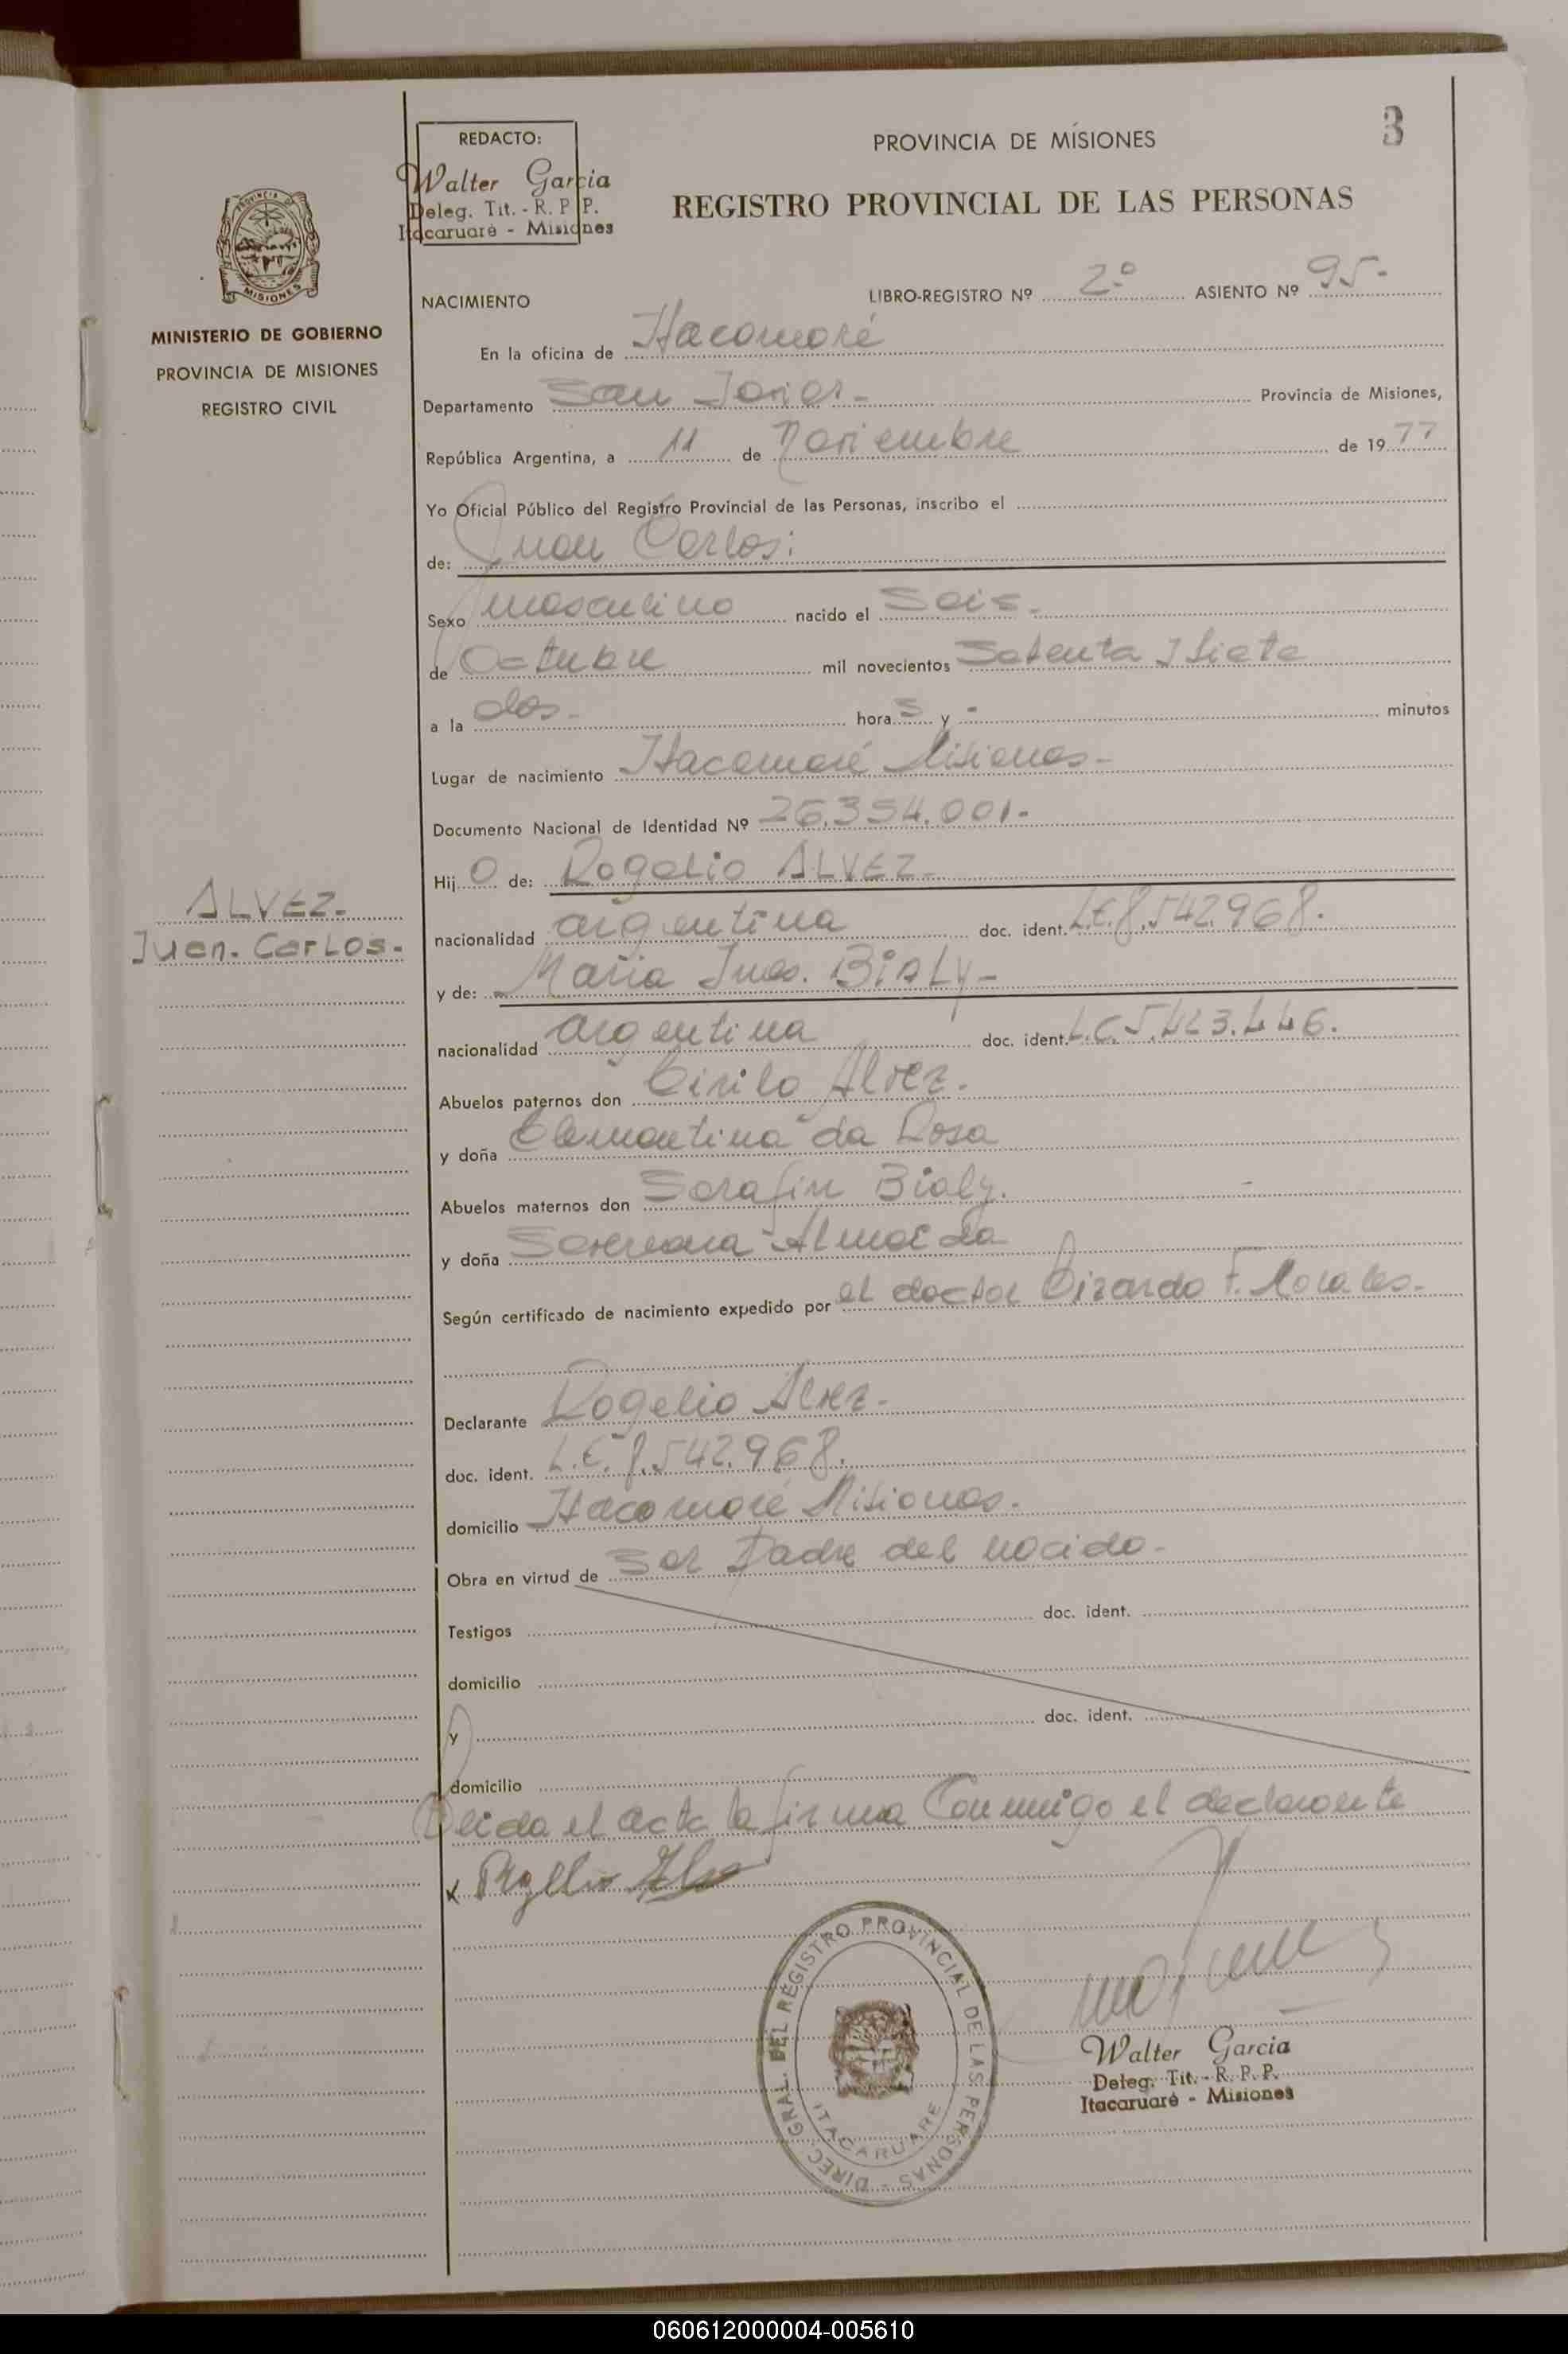 3
REDACTO:
Walter Garcia
Deleg. Tit. - R. P. P.
Itacaruaré - Misiones
PROVINCIA DE MISIONES
REGISTRO PROVINCIAL DE LAS PERSONAS
MISIONES
MINISTERIO DE GOBIERNO
PROVINCIA DE MISIONES
REGISTRO CIVIL
NACIMIENTO LIBRO-REGISTRO Nº 2º ASIENTO Nº 95-
En la oficina de Itacaruaré
Departamento San Javier- Provincia de Misiones,
República Argentina, a 11 de Noviembre de 1977
Yo Oficial Público del Registro Provincial de las Personas, inscribo el
de: Juan Carlos:
Sexo masculino nacido el Seis-
de Octubre mil novecientos Setenta y Siete
a la dos- hora s y - minutos
Lugar de nacimiento Itacaruaré Misiones-
Documento Nacional de Identidad Nº 26.354.001-
Hij o de: Rogelio ALVEZ-
nacionalidad argentina doc. ident. L.E. 8.542.968.
ALVEZ-
Juan. Carlos-
y de: Maria Ines. BIALY-
nacionalidad argentina doc. ident. L.C.
Abuelos paternos don Cirilo Alvez.
y doña Clementina da Rosa
Abuelos maternos don Serafin Bialy.
y doña Almeida
Según certificado de nacimiento expedido por el doctor F. Morales-
Declarante Rogelio Alvez-
doc. ident. L.E. 8.542.968.
domicilio Itacaruaré Misiones.
Obra en virtud de Ser Padre del nacido-
Testigos doc. ident.
domicilio
y doc. ident.
domicilio
Leida el acta la firma Conmigo el declarante
x
DIREC. GRAL. DEL REGISTRO PROVINCIAL DE LAS PERSONAS -
ITACARUARE
Walter Garcia
Deleg. Tit. - R. P. P.
Itacaruaré - Misiones
060612000004-005610